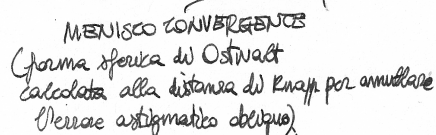 MENISCO CONVERGENTE
(forma sferica di Ostwalt
calcolata alla distanza di Knapp per annullare
l'errore astigmatico obliquo)